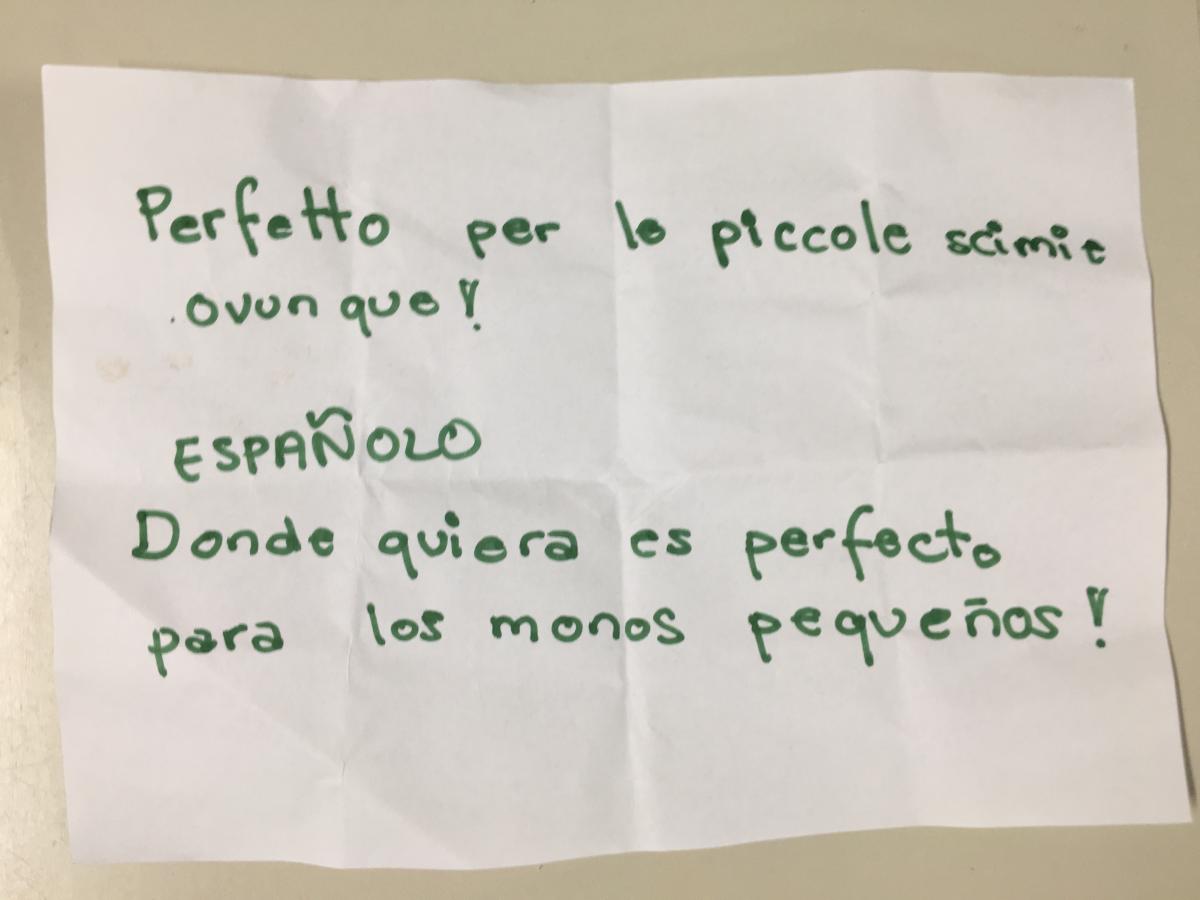 Perfetto per le piccole scimie
ovunque!
ESPAÑOLO
Donde quiera es perfecto
para los monos pequeños!